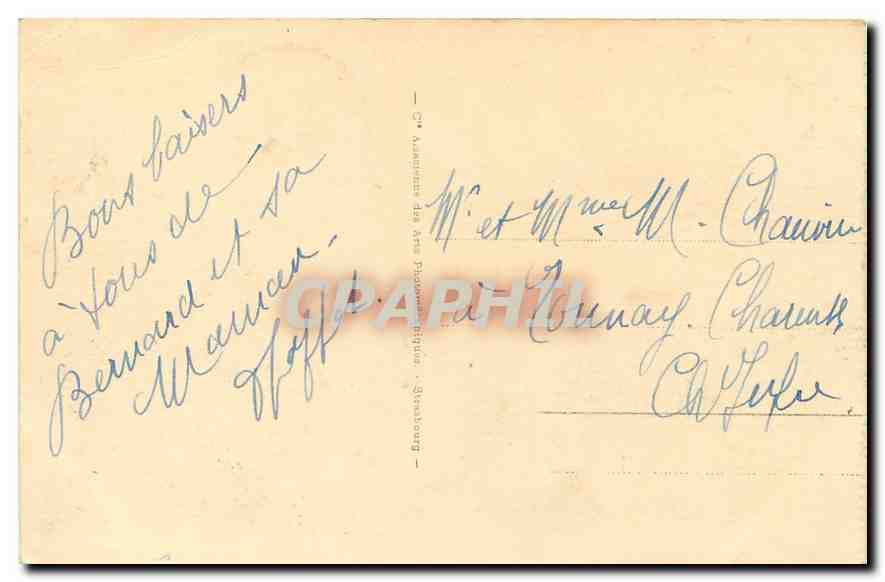 Bons baisers
à tous de
Bernard et sa
Maman.
— Cie Alsacienne des Arts Photomécaniques - Strasbourg —
CPAPHIL
Mr et Mme M. Chauvin
à Tonnay. Charente
Ch Infre